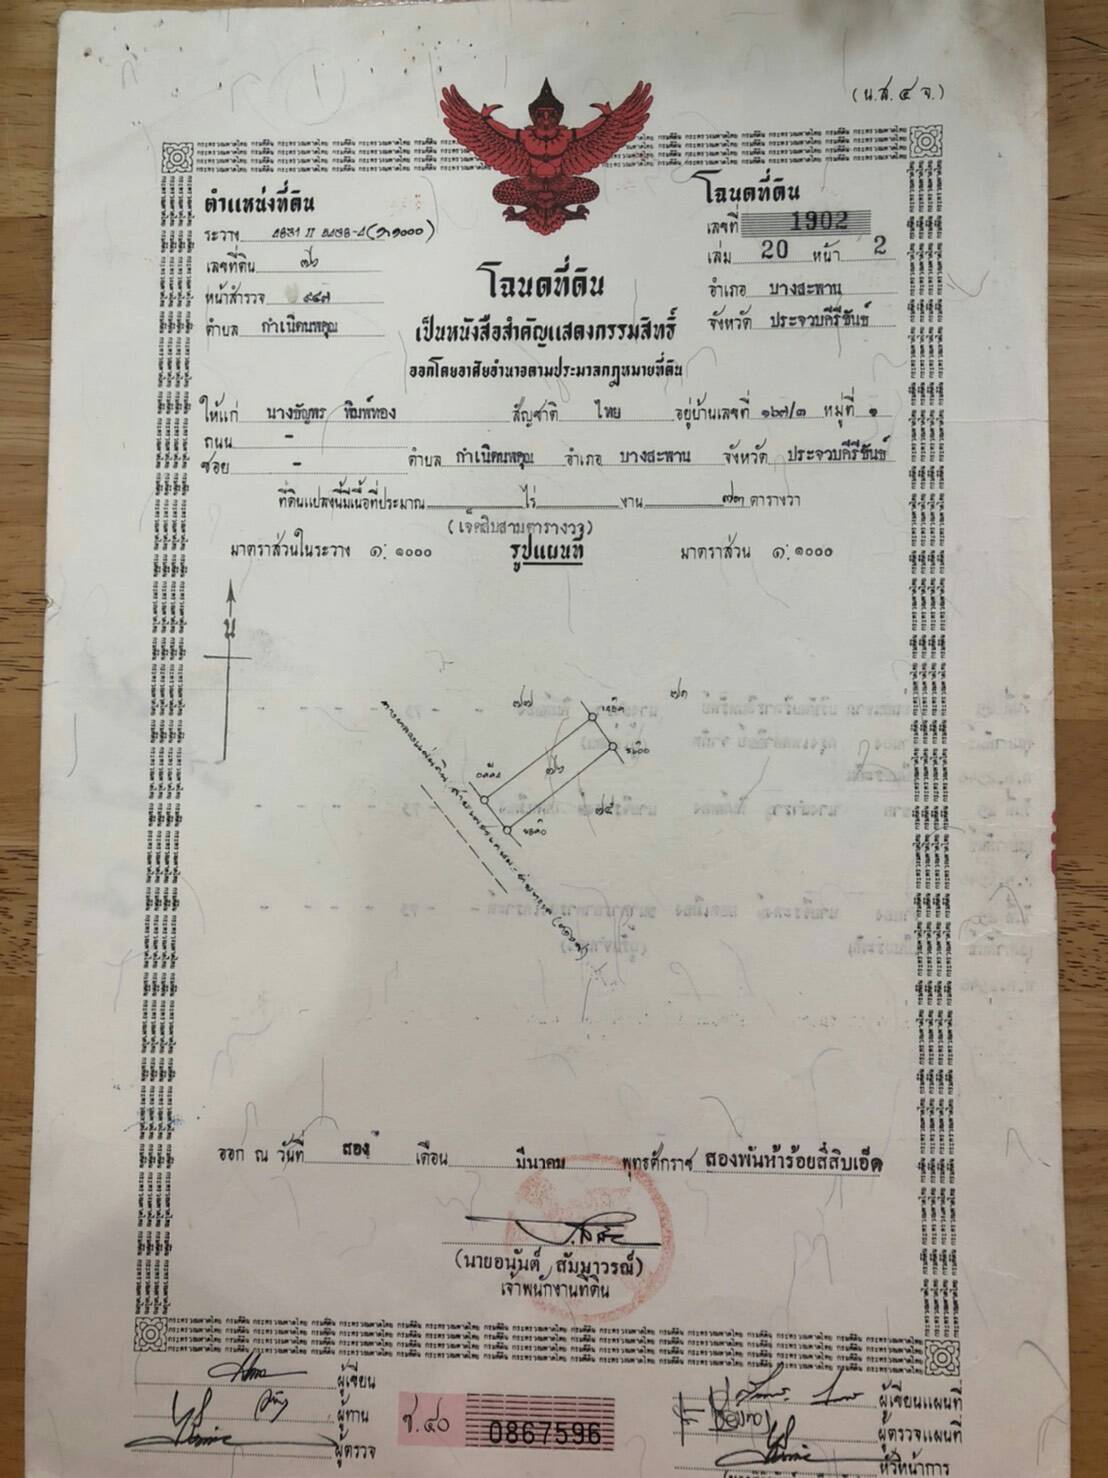 (น.ส.๔ จ.)
ตำแหน่งที่ดิน
ระวาง
เลขที่ดิน ๗๖
หน้าสำรวจ ๙๔๗
ตำบล กำเนิดนพคุณ
โฉนดที่ดิน
เลขที่ 1902
เล่ม 20 หน้า 2
อำเภอ บางสะพาน
จังหวัด ประจวบคีรีขันธ์
โฉนดที่ดิน
เป็นหนังสือสำคัญแสดงกรรมสิทธิ์
ออกโดยอาศัยอำนาจตามประมวลกฎหมายที่ดิน
ให้แก่ นางธัญพร พิมพ์ทอง สัญชาติ ไทย อยู่บ้านเลขที่ ๑๖๗/๓ หมู่ที่ ๑
ถนน -
ซอย - ตำบล กำเนิดนพคุณ อำเภอ บางสะพาน จังหวัด ประจวบคีรีขันธ์
ที่ดินแปลงนี้มีเนื้อที่ประมาณ ไร่ งาน ๗๓ ตารางวา
(เจ็ดสิบสามตารางวา)
มาตราส่วนในระวาง ๑:๑๐๐๐ รูปแผนที่ มาตราส่วน ๑:๑๐๐๐
น
๗๗
๗๖
๗๕
ออก ณ วันที่ สอง เดือน มีนาคม พุทธศักราช สองพันห้าร้อยสี่สิบเอ็ด
(นายอนันต์ สัมมาวรณ์)
เจ้าพนักงานที่ดิน
ผู้เขียน
ผู้ทาน
ผู้ตรวจ
ช.๔๐
0867596
ผู้เขียนแผนที่
ผู้ตรวจแผนที่
หัวหน้าการ